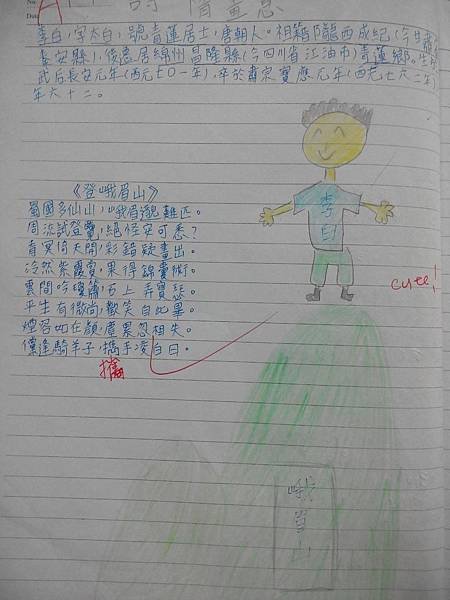 A
詩情畫意
李白,字太白,號青蓮居士,唐朝人。祖籍隴西成紀(今甘肅
秦安縣),後遷居綿州昌隆縣(今四川省江油市)青蓮鄉。生
武后長安元年(西元七〇一年),卒於肅宗寶應元年(西元七六二年)
年六十二。
《登峨眉山》
蜀國多仙山,峨眉邈難匹。
周流試登覽,絕怪安可悉?
青冥倚天開,彩錯疑畫出。
泠然紫霞賞,果得錦囊術。
雲間吟瓊簫,石上弄寶瑟。
平生有微尚,歡笑自此畢。
煙容如在顏,塵累忽相失。
儻逢騎羊子,攜手凌白日。
攜
李白
cute!
峨眉山